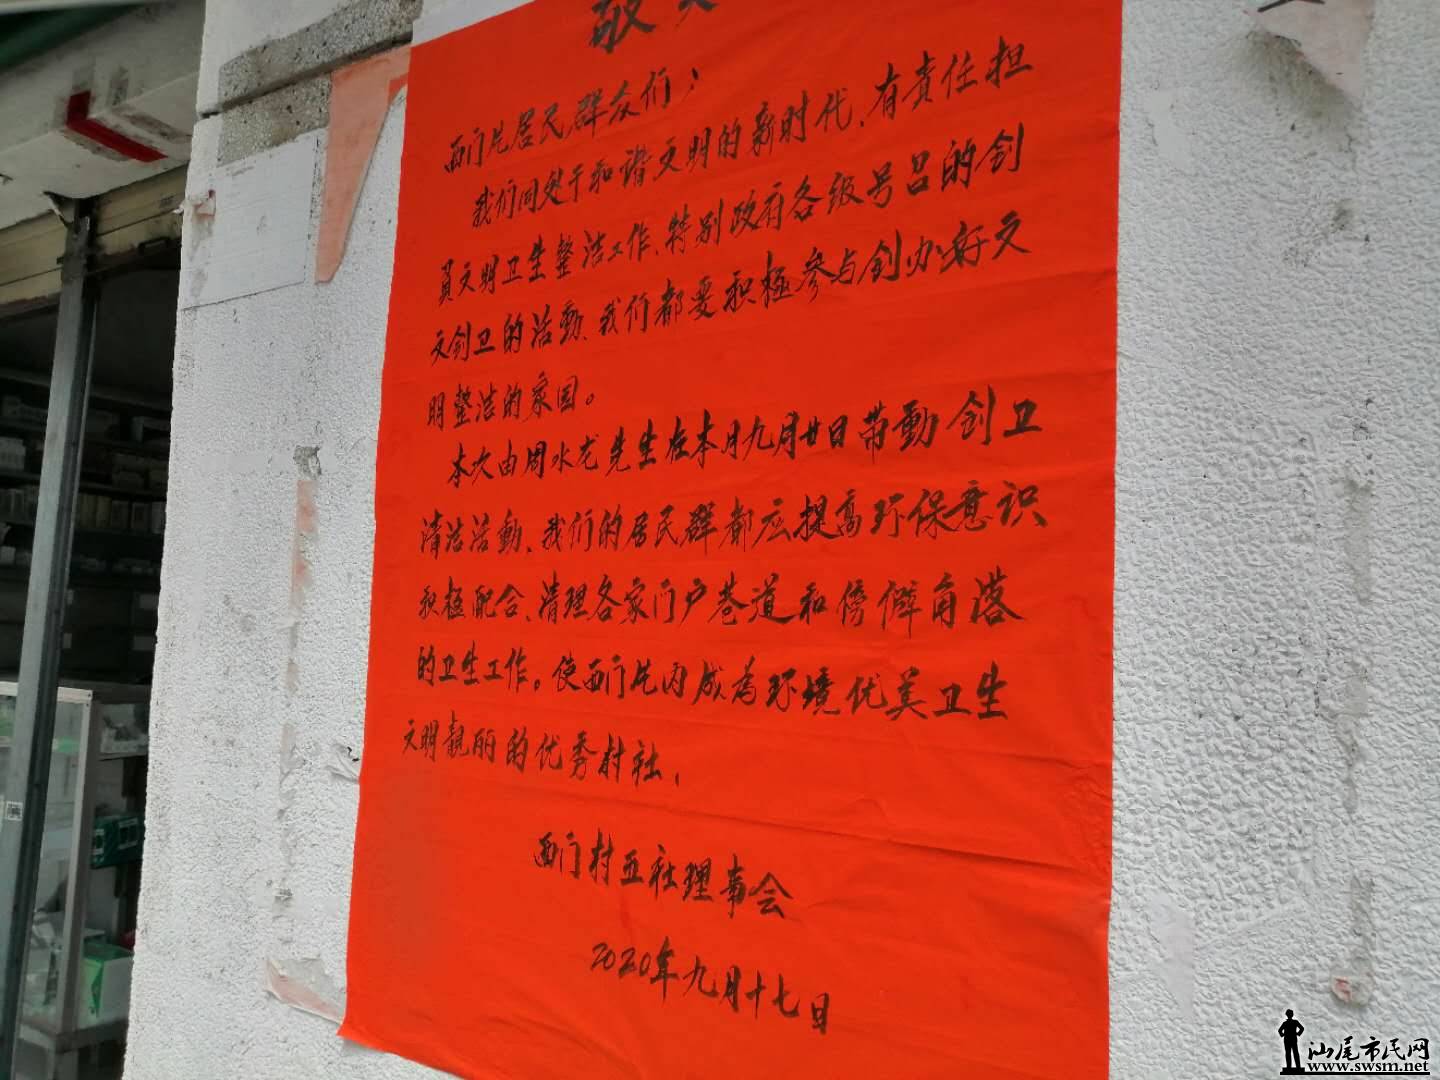 敬
西门片居民群众们:
我们同处于和谐文明的新时代、有責任担
負文明卫生整洁工作、特别政府各级号召的创
文创卫的活動、我们都要积極参与创办好文
明整洁的家园。
本次由周水龙先生在本月九月廿日带動创卫
清洁活動、我们的居民群都应提高环保意识
积極配合、清理各家门户巷道和傍僻角落
的卫生工作。使西门片内成为环境优美卫生
文明靚丽的优秀村社,
西门村五社理事会
2020年九月十七日
汕尾市民网
www.swsm.net